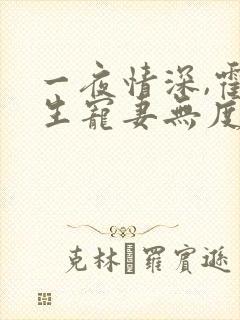 一夜情深,霍
生寵妻無度
克林 羅賓遜